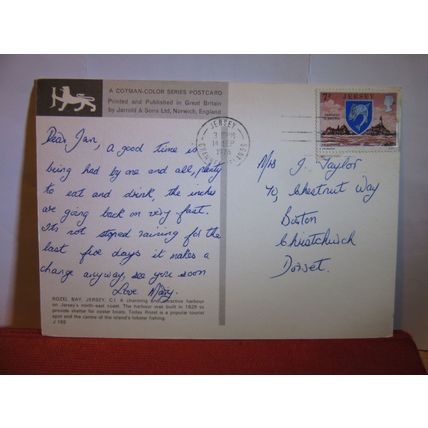 A COTMAN-COLOR SERIES POSTCARD
Printed and Published in Great Britain
by Jarrold & Sons Ltd, Norwich, England
JERSEY
CHANNEL ISLANDS
14 SEP
1976
7p
JERSEY
Dear Jan,
a good time is
being had by one and all, plenty
to eat and drink, the inches
are going back on very fast.
It's not stoped raining for the
last five days it makes a
change anyway, see you soon
Love Mary.
Mrs J. Taylor
70, Chestnut Way
Boston
Christchurch
Dorset.
ROZEL BAY, JERSEY, C.I. A charming and attractive harbour
on Jersey's north-east coast. The harbour was built in 1829 to
provide shelter for oyster boats. Today Rozel is a popular tourist
spot and the centre of the island's lobster fishing.
J 160